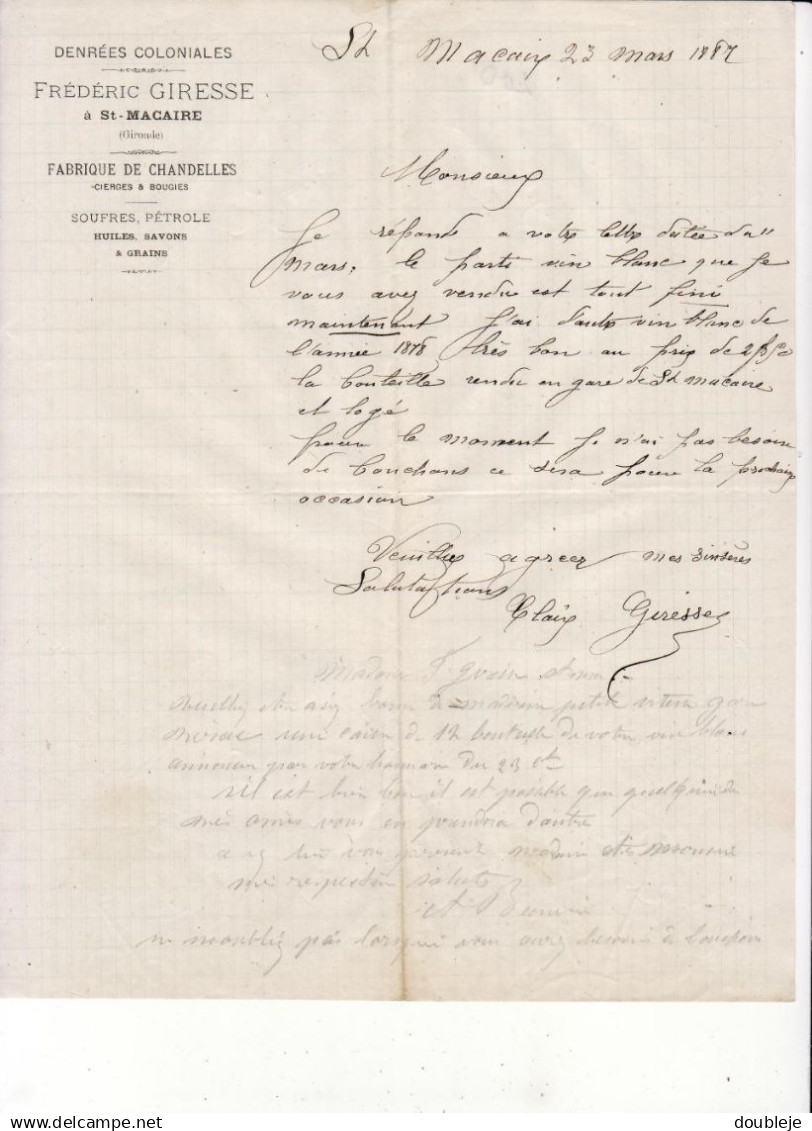 DENRÉES COLONIALES
FRÉDÉRIC GIRESSE
à St-MACAIRE
(Gironde)
FABRIQUE DE CHANDELLES
CIERGES & BOUGIES
SOUFRES, PÉTROLE
HUILES, SAVONS
& GRAINS
St Macaire 23 mars 1887
Monsieur
Je répond a votre lettre datée du 11
mars, le parti vin blanc que je
vous avez vendu est tout fini
maintenant J'ai d'autre vin blanc de
l'année 1878 très bon au prix de 2f50
la bouteille rendu en gare de St macaire
et logé
pour le moment je n'ai pas besoin
de bouchons ce sera pour la prochaine
occasion
Veuillez agreer mes sinsères
Salutations
Claire Giresse
Madame
bonne de petite vitesse gare
une caisse de 12 bouteille de votre vin blanc
par votre du 23 
s'il est bien bon il est posible que quelqu'un de
mes amis vous en prendra d'autre
madame et monsieur
mes respectueu saluts
ne moubliez pas lorsque vous aurez besoin de bouchons
doubleje